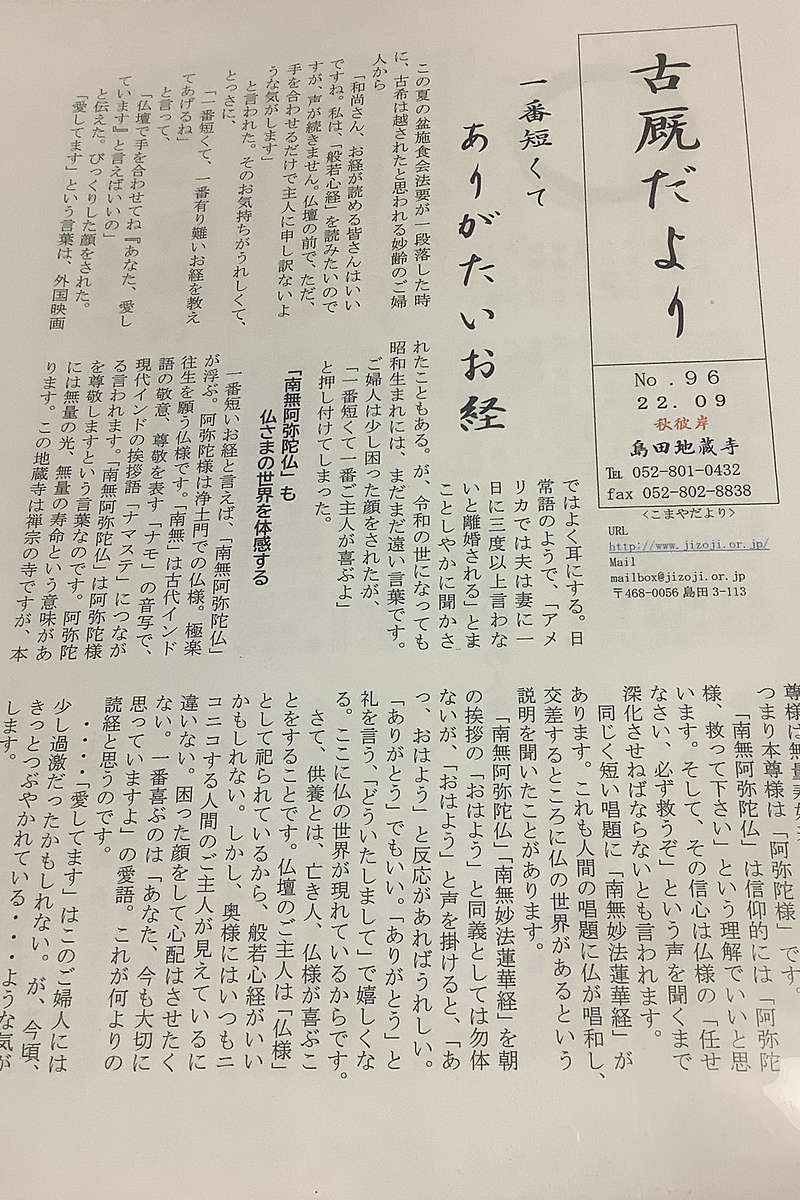 古厩だより
No.96
22.09
秋彼岸
島田地蔵寺
℡ 052-801-0432
fax 052-802-8838
<こまやだより>
URL
http://www.jizoji.or.jp/
Mail
mailbox@jizoji.or.jp
〒468-0056 島田 3-113
一番短くて
ありがたいお経
この夏の盆施食会法要が一段落した時
に、古希は越されたと思われる妙齢のご婦
人から
「和尚さん、お経が読める皆さんはいい
ですね。私は、「般若心経」を読みたいので
すが、声が続きません。仏壇の前で、ただ、
手を合わせるだけで主人に申し訳ないよ
うな気がします」
と言われた。そのお気持ちがうれしくて、
とっさに、
「一番短くて、一番有り難いお経を教え
てあげるね」
と言って、
「仏壇で手を合わせてね『あなた、愛し
ています』と言えばいいの」
と伝えた。びっくりした顔をされた。
「愛してます」という言葉は、外国映画
ではよく耳にする。日
常語のようで、「アメ
リカでは夫は妻に一
日に三度以上言わな
いと離婚される」とま
ことしやかに聞かさ
れたこともある。が、令和の世になっても
昭和生まれには、まだまだ遠い言葉です。
ご婦人は少し困った顔をされたが、
「一番短くて一番ご主人が喜ぶよ」
と押し付けてしまった。
「南無阿弥陀仏」も
仏さまの世界を体感する
一番短いお経と言えば、「南無阿弥陀仏」
が浮ぶ。阿弥陀様は浄土門での仏様。極楽
往生を願う仏様です。「南無」は古代インド
語の敬意、尊敬を表す「ナモ」の音写で、
現代インドの挨拶語「ナマステ」につなが
る言われます。「南無阿弥陀仏」は阿弥陀様
を尊敬しますという言葉なのです。阿弥陀
には無量の光、無量の寿命という意味があ
ります。この地蔵寺は禅宗の寺ですが、本
尊様は無量寿如来
つまり本尊様は「阿弥陀様」です。
「南無阿弥陀仏」は信仰的には「阿弥陀
様、救って下さい」という理解でいいと思
います。そして、その信心は仏様の「任せ
なさい、必ず救うぞ」という声を聞くまで
深化させねばならないとも言われます。
同じく短い唱題に「南無妙法蓮華経」が
あります。これも人間の唱題に仏が唱和し、
交差するところに仏の世界があるという
説明を聞いたことがあります。
「南無阿弥陀仏」「南無妙法蓮華経」を朝
の挨拶の「おはよう」と同義としては勿体
ないが、「おはよう」と声を掛けると、「あ
っ、おはよう」と反応があればうれしい。
「ありがとう」でもいい。「ありがとう」と
礼を言う、「どういたしまして」で嬉しくな
る。ここに仏の世界が現れているからです。
さて、供養とは、亡き人、仏様が喜ぶこ
とをすることです。仏壇のご主人は「仏様」
として祀られているから、般若心経がいい
かもしれない。しかし、奥様にはいつもニ
コニコする人間のご主人が見えているに
違いない。困った顔をして心配はさせたく
ない。一番喜ぶのは「あなた、今も大切に
思っていますよ」の愛語。これが何よりの
読経と思うのです。
・・・・「愛してます」はこのご婦人には
少し過激だったかもしれない。が、今頃、
きっとつぶやかれている・・・ような気が
します。